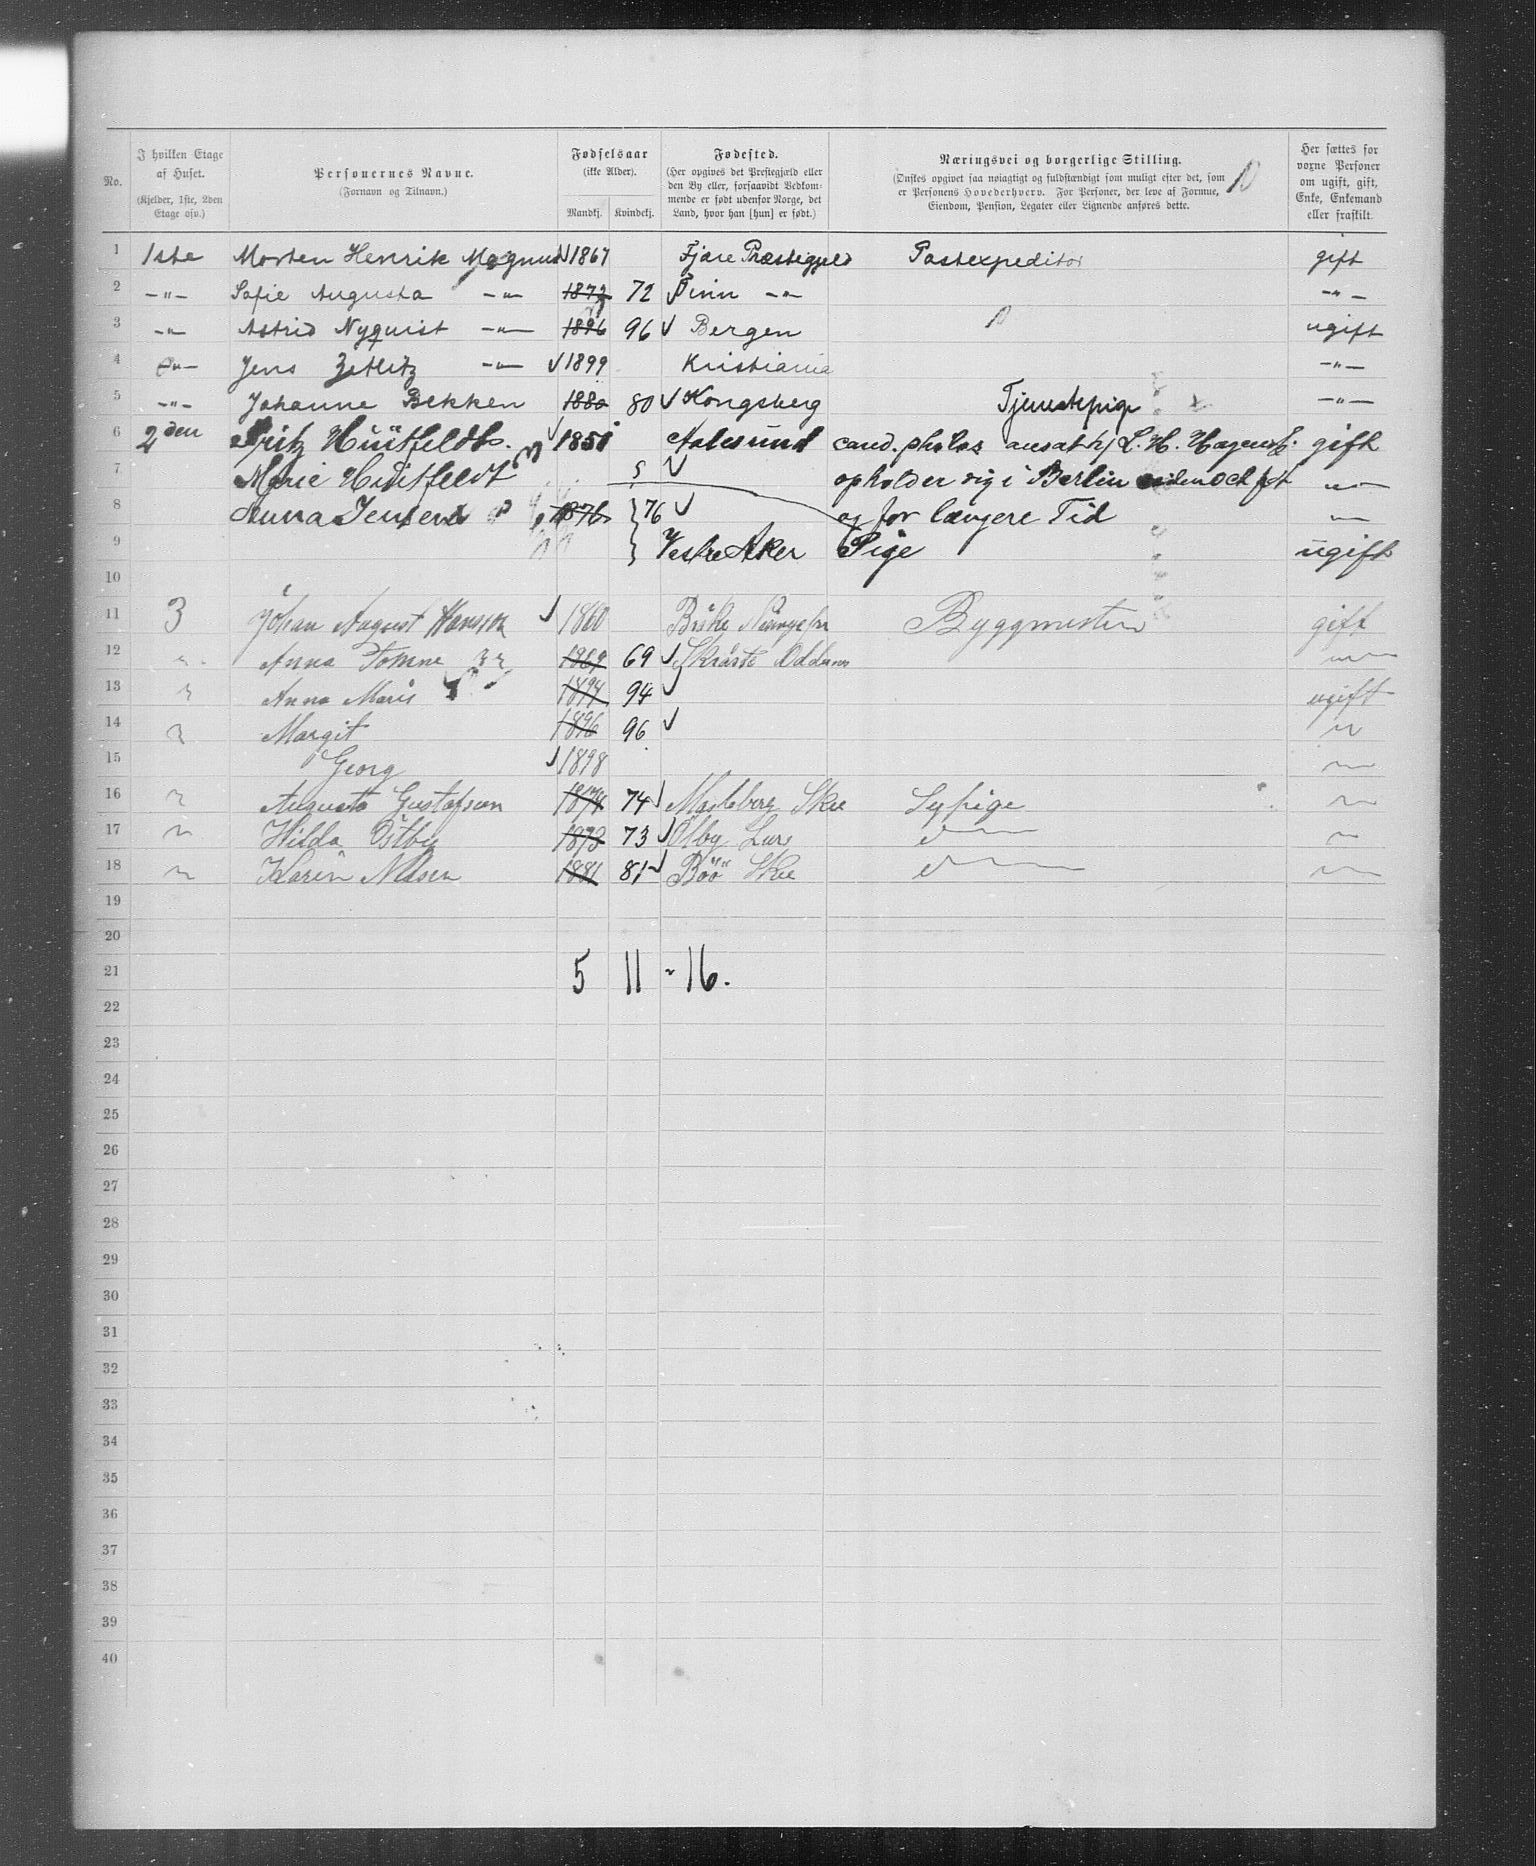 No. I hvilken Etage af Huset. (Kjelder, 1ste, 2den Etage osv.) Personernes Navne. (Fornavn og Tilnavn.) Fødselsaar (ikke Alder). Mandkj. Kvindekj. Fødested. (Her opgives det Prestegjæld eller den By eller, forsaavidt Vedkommende er født udenfor Norge, det Land, hvor han [hun] er født.) Næringsvei og borgerlige Stilling. (Ønskes opgivet saa nøiagtigt og fuldstændigt som muligt efter det, som er Personens Hovederhverv. For Personer, der leve af Formue, Eiendom, Pension, Legater eller Lignende anføres dette.) Her sættes for voxne Personer om ugift, gift, Enke, Enkemand eller fraskilt.
1 1ste Morten Henrik Magnus 1867 Fjære Præstegjeld Postexpeditor gift
2 -"- Sofie Augusta -"- 1872 72 -"- -"-
3 -"- Astrid Nyquist -"- 1896 96 Bergen ugift
4 -"- Jens Zetlitz -"- 1899 Kristiania -"-
5 -"- Johanne Bekken 1880 80 Kongsberg Tjenestepige -"-
6 2den Fritz Hüitfeldt. 1851 Aalesund cand. philos ansat L. H. Hagen gift
7 Marie Huitfeldt 5 opholder sig i Berlin siden Oct -"-
8 Anna Jensen 1876 76 og for længere Tid -"-
9 Vestre Aker Pige ugift
10
11 3 Johan August Hansson 1860 Byggmester gift
12 Anna 1869 69 -"-
13 Anna Maria 1894 94 ugift
14 Margit 1896 96
15 Georg 1898
16 Augusta Gustafson 1874 74 Sypige
17 Hilda Östby 1873 73
18 Karin Nilsen 1881 81
19
20
21 5 11 - 16.
22
23
24
25
26
27
28
29
30
31
32
33
34
35
36
37
38
39
40